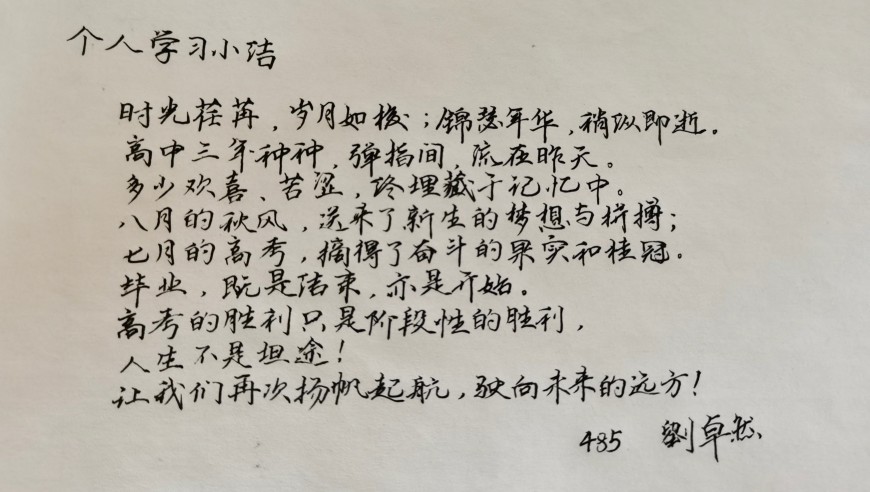 个人学习小结
时光荏苒，岁月如梭；锦瑟年华，稍纵即逝。
高中三年种种，弹指间，流在昨天。
多少欢喜、苦涩，终埋藏于记忆中。
八月的秋风，送来了新生的梦想与拼搏；
七月的高考，摘得了奋斗的果实和桂冠。
毕业，既是结束，亦是开始。
高考的胜利只是阶段性的胜利，
人生不是坦途！
让我们再次扬帆起航，驶向未来的远方！
485 劉卓然